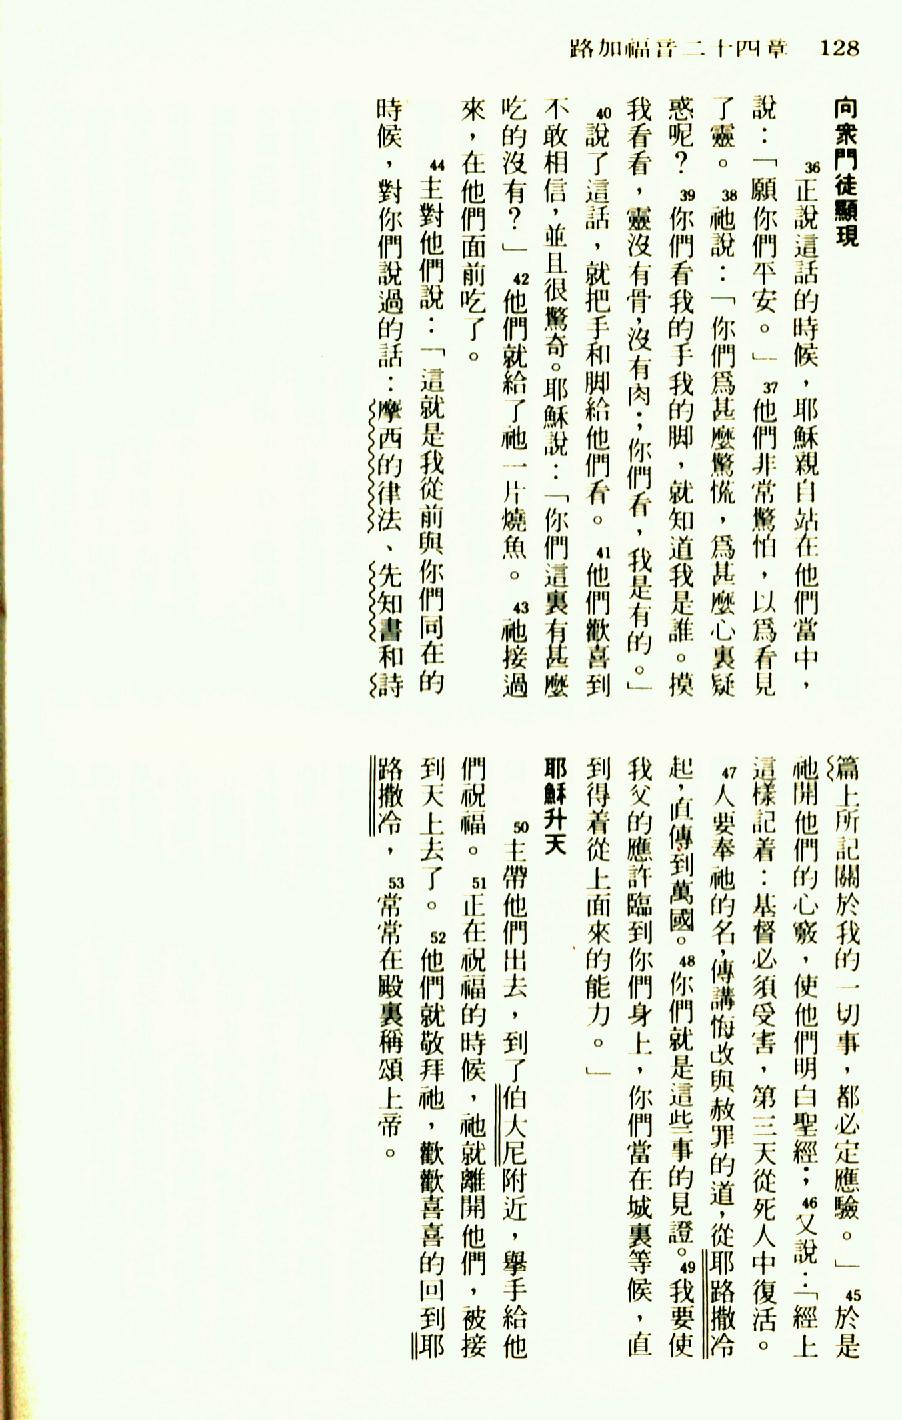 路加福音二十四章 128
向衆門徒顯現
36正說這話的時候，耶穌親自站在他們當中，
說：「願你們平安。」37他們非常驚怕，以爲看見
了靈。38祂說：「你們爲甚麼驚慌，爲甚麼心裏疑
惑呢？39你們看我的手我的脚，就知道我是誰。摸
我看看，靈沒有骨，沒有肉；你們看，我是有的。」
40說了這話，就把手和脚給他們看。41他們歡喜到
不敢相信，並且很驚奇。耶穌說：「你們這裏有甚麼
吃的沒有？」42他們就給了祂一片燒魚。43祂接過
來，在他們面前吃了。
44主對他們說：「這就是我從前與你們同在的
時候，對你們說過的話：摩西的律法、先知書和詩
篇上所記關於我的一切事，都必定應驗。」45於是
祂開他們的心竅，使他們明白聖經；46又說：「經上
這樣記着：基督必須受害，第三天從死人中復活。
47人要奉祂的名，傳講悔改與赦罪的道，從耶路撒冷
起，直傳到萬國。48你們就是這些事的見證。49我要使
我父的應許臨到你們身上，你們當在城裏等候，直
到得着從上面來的能力。」
耶穌升天
50主帶他們出去，到了伯大尼附近，舉手給他
們祝福。51正在祝福的時候，祂就離開他們，被接
到天上去了。52他們就敬拜祂，歡歡喜喜的回到耶
路撒冷，53常常在殿裏稱頌上帝。